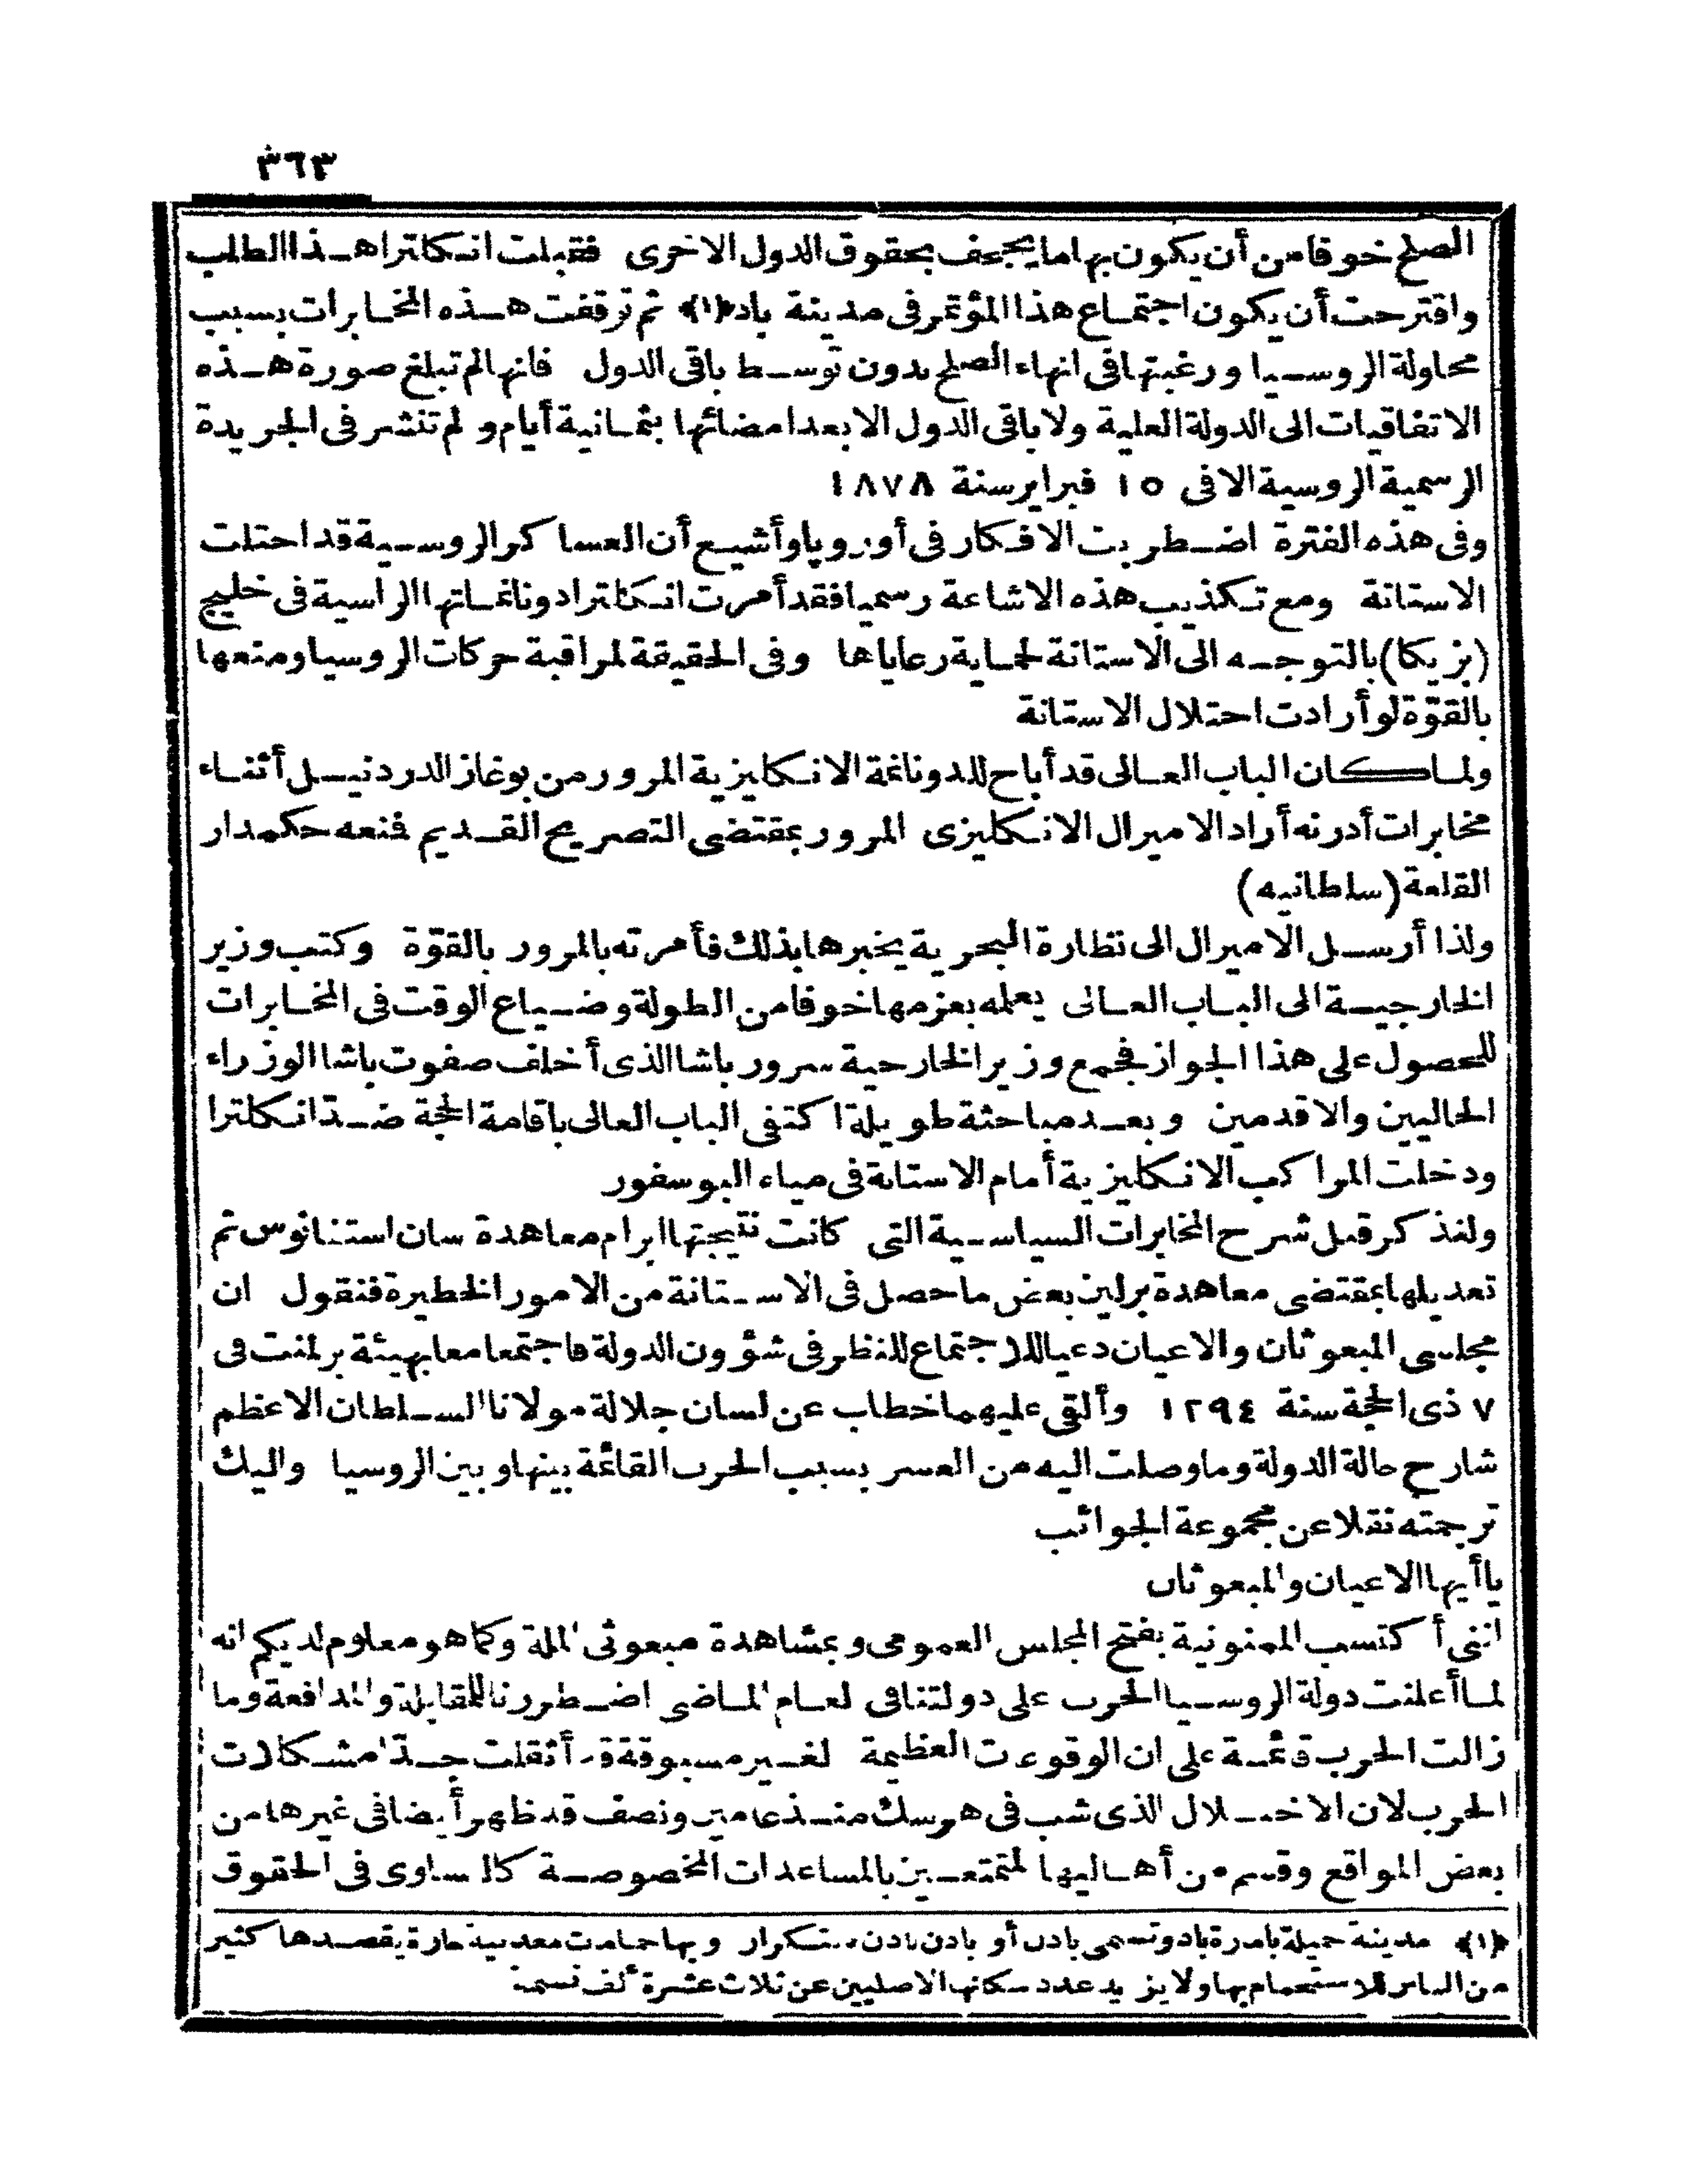 ٣٦٣
الصلح خوفا من أن يكون بها ما يجحف بحقوق الدول الاخرى فقبلت انكلترا هذا الطلب
واقترحت أن يكون اجتماع هذا المؤتمر فى مدينة باد (١) ثم توقفت هذه المخابرات بسبب
محاولة الروسيا ورغبتها فى انهاء الصلح بدون توسط باقى الدول فانها لم تبلغ صورة هذه
الاتفاقيات الى الدولة العلية ولا باقى الدول الا بعد امضائها بثمانية أيام ولم تنشر فى الجريدة
الرسمية الروسية الا فى ١٥ فبراير سنة ١٨٧٨
وفى هذه الفترة اضطربت الافكار فى أوروپا وأشيع أن العساكر الروسية قد احتلت
الاستانة ومع تكذيب هذه الاشاعة رسميا فقد أمرت انكلترا دونانماتها الراسية فى خليج
(بزيكا) بالتوجه الى الاستانة لحماية رعاياها وفى الحقيقة لمراقبة حركات الروسيا ومنعها
بالقوّة لو أرادت احتلال الاستانة
ولما كان الباب العالى قد أباح للدونانمة الانكليزية المرور من بوغاز الدردنيل أثناء
مخابرات أدرنه أراد الاميرال الانكليزى المرور بمقتضى التصريح القديم فمنعه حكمدار
القلعة (سلطانيه)
ولذا أرسل الاميرال الى نظارة البحرية يخبرها بذلك فأمرته بالمرور بالقوّة وكتب وزير
الخارجية الى الباب العالى يعلمه بعزمها خوفا من الطولة وضياع الوقت فى المخابرات
للحصول على هذا الجواز فجمع وزير الخارجية سرور باشا الذى أخلف صفوت باشا الوزراء
الحاليين والاقدمين وبعد مباحثة طويلة اكتفى الباب العالى باقامة الحجة ضدّ انكلترا
ودخلت المراكب الانكليزية أمام الاستانة فى مياه البوسفور
ولنذكر قبل شرح المخابرات السياسية التى كانت نتيجتها ابرام معاهدة سان استفانوس ثم
تعديلها بمقتضى معاهدة برلين بعض ما حصل فى الاستانة من الامور الخطيرة فنقول ان
مجلسى المبعوثان والاعيان دعيا للاجتماع للنظر فى شؤون الدولة فاجتمعا معا بهيئة برلمنت فى
٧ ذى الحجة سنة ١٢٩٤ وألقى عليهما خطاب عن لسان جلالة مولانا السلطان الاعظم
شارح حالة الدولة وما وصلت اليه من العسر بسبب الحرب القائمة بينها وبين الروسيا واليك
ترجمته نقلا عن مجموعة الجوائب
يا أيها الاعيان والمبعوثان
اننى أكتسب الممنونية بفتح المجلس العمومى وبمشاهدة مبعوثى الملة وكما هو معلوم لديكم انه
لما أعلنت دولة الروسيا الحرب على دولتنا فى العام الماضى اضطررنا للمقابلة والمدافعة وما
زالت الحرب قائمة على ان الوقوعات العظيمة الغير مسبوقة قد أثقلت جدّا مشكلات
الحرب لان الاختلال الذى شب فى هرسك منذ عامين ونصف قد ظهر أيضا فى غيرها من
بعض المواقع وقسم من أهاليها المتمتعين بالمساعدات المخصوصة كالتساوى فى الحقوق
(١) مدينة جميلة بامارة باد وتسمى بادن أو بادن بادن بتكرار وبها حمامات معدنية حارة يقصدها كثير
من الناس للاستحمام بها ولا يزيد عدد سكانها الاصليين عن ثلاث عشرة ألف نسمة